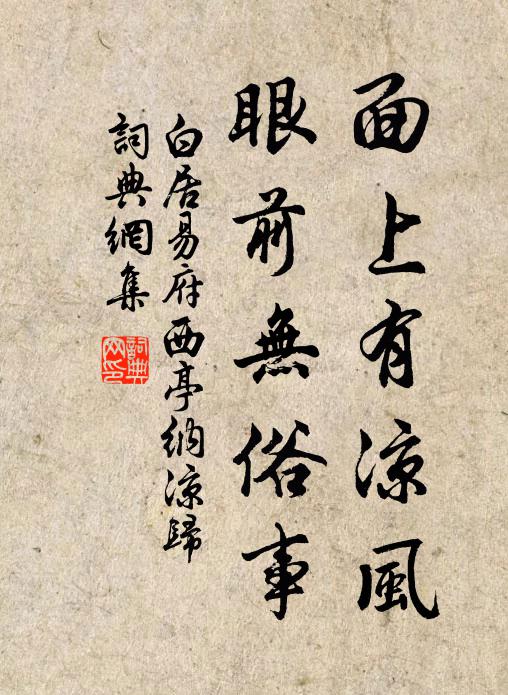 面上有涼風
眼前無俗事
白居易府西亭納涼歸
詞典網集
詞典网印